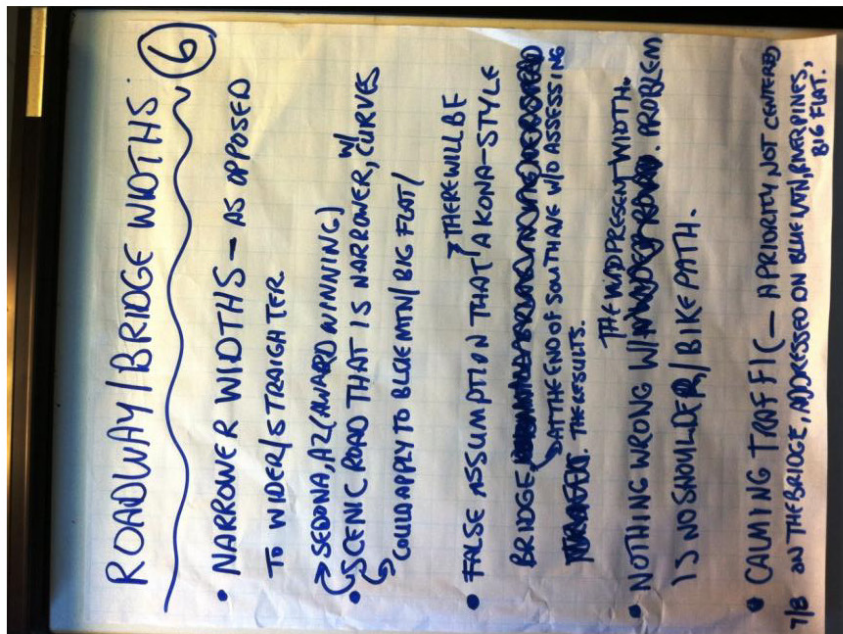 ROADWAY/BRIDGE WIDTHS 6
• NARROWER WIDTHS — AS OPPOSED
TO WIDER/STRAIGHTER
SEDONA, AZ (AWARD WINNING)
• SCENIC ROAD THAT IS NARROWER, W/ CURVES
COULD APPLY TO BLUE MTN/BIG FLAT/
• FALSE ASSUMPTION THAT THERE WILL BE A KONA-STYLE
BRIDGE
AT THE END OF SOUTH AVE W/O ASSESSING
THE RESULTS.
• NOTHING WRONG W/ THE PRESENT WIDTH. PROBLEM
IS NO SHOULDER/BIKE PATH.
• CALMING TRAFFIC — A PRIORITY NOT CENTERED
7/8 ON THE BRIDGE, ADDRESSED ON BLUE MTN, RIVER PINES,
BIG FLAT.